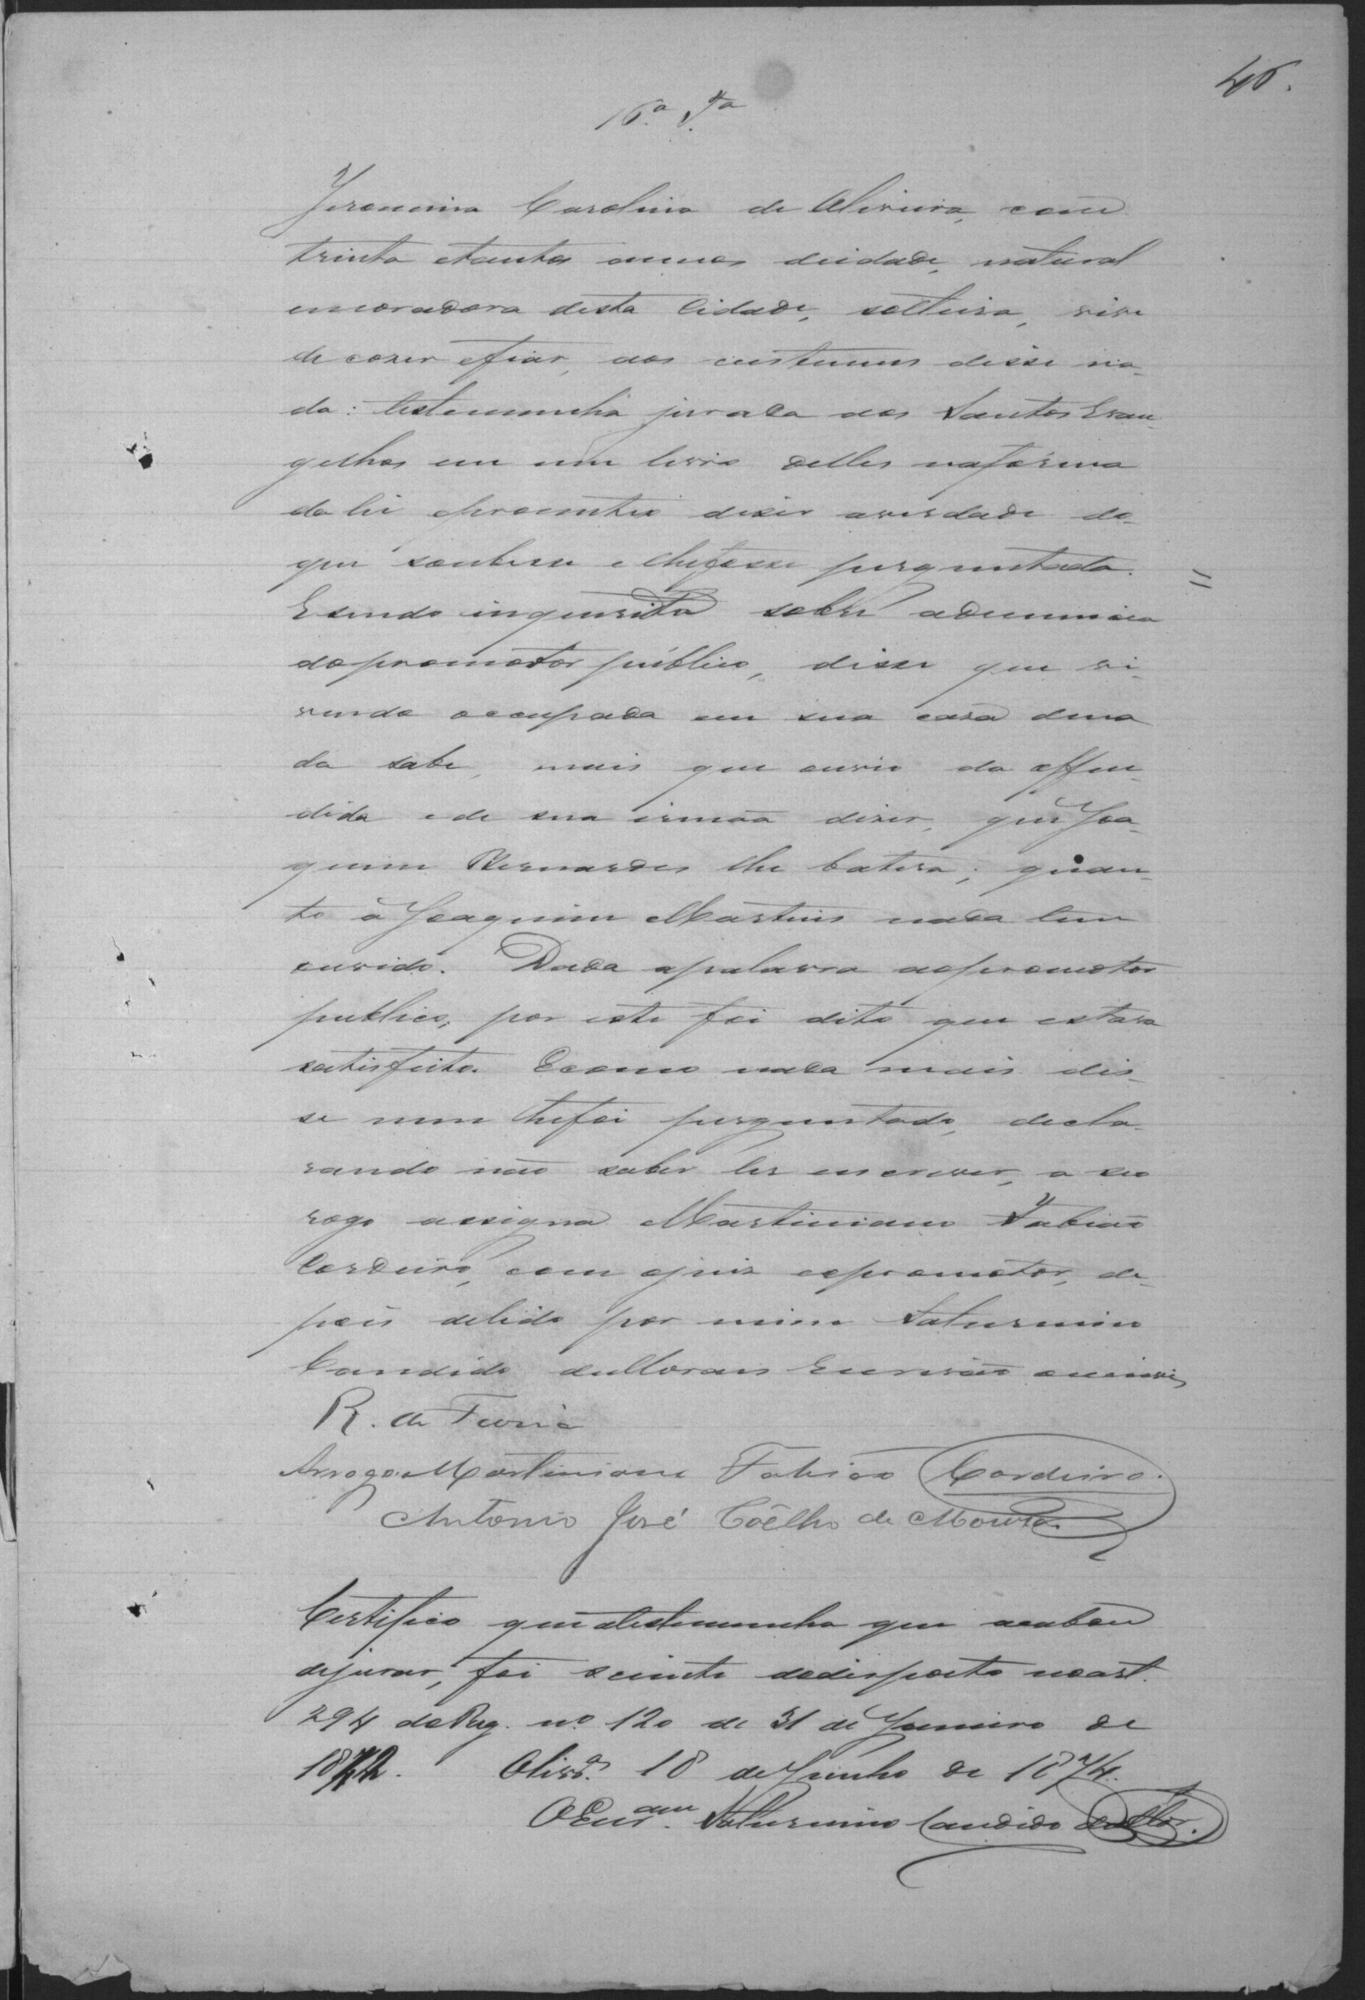 46.
16.ª T.ª
Jeronima Carolina de Oliveira, com
trinta etantos annos deidade, natural
emoradora desta Cidade, solteira, vive
de cozer efiar, aos custumes disse na-
da: testemunha jurada aos Santos Evan-
gelhos em um livro delles naforma
da lei eprometteo dizer averdade do
que soubesse elhefosse perguntada.
Esendo inquerida sobre adenuncia
dopromotor publico, disse que vi-
vendo occupada em sua casa dena
da sabe, mais que ouvio da offen-
dida ede sua irmãa dizer, que Joa-
quim Bernardes lhe batera; quan-
to á Joaquim Martins nada tem
ouvido. Dada apalavra aopromotor
publico, por este foi dito que estava
satisfeito. Ecomo nada mais dis-
se nem lhefoi perguntado, decla-
rando não saber ler escrever, a seo
rogo assigna Martiniano Fabião
Cordeiro, com ojuiz eopromotor, de-
pois delido por mim Saturnino
Candido deMoraes Escrivão oescrevi
R. de
Arrogo Martiniano Fabião Cordeiro.
Antonio José Coêlho de Moura.
Certifico que atestemunha que acabou
dejurar, foi sciente dodisposto noart.
294 doReg. nº 120 de 31 de Janeiro de
1842. Olivrª. 18 de Junho de 1874.
OEscrᵃᵐ. Saturnino Candido deMor.